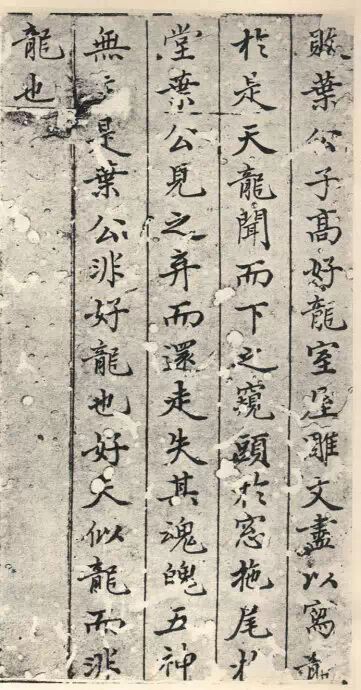 葉公子高好龍室屋雕文盡以寫
於是天龍聞而下之窺頭於窓拖尾
堂葉公見之弃而還走失其魂魄五神
無是葉公非好龍也好夫似龍而非
龍也